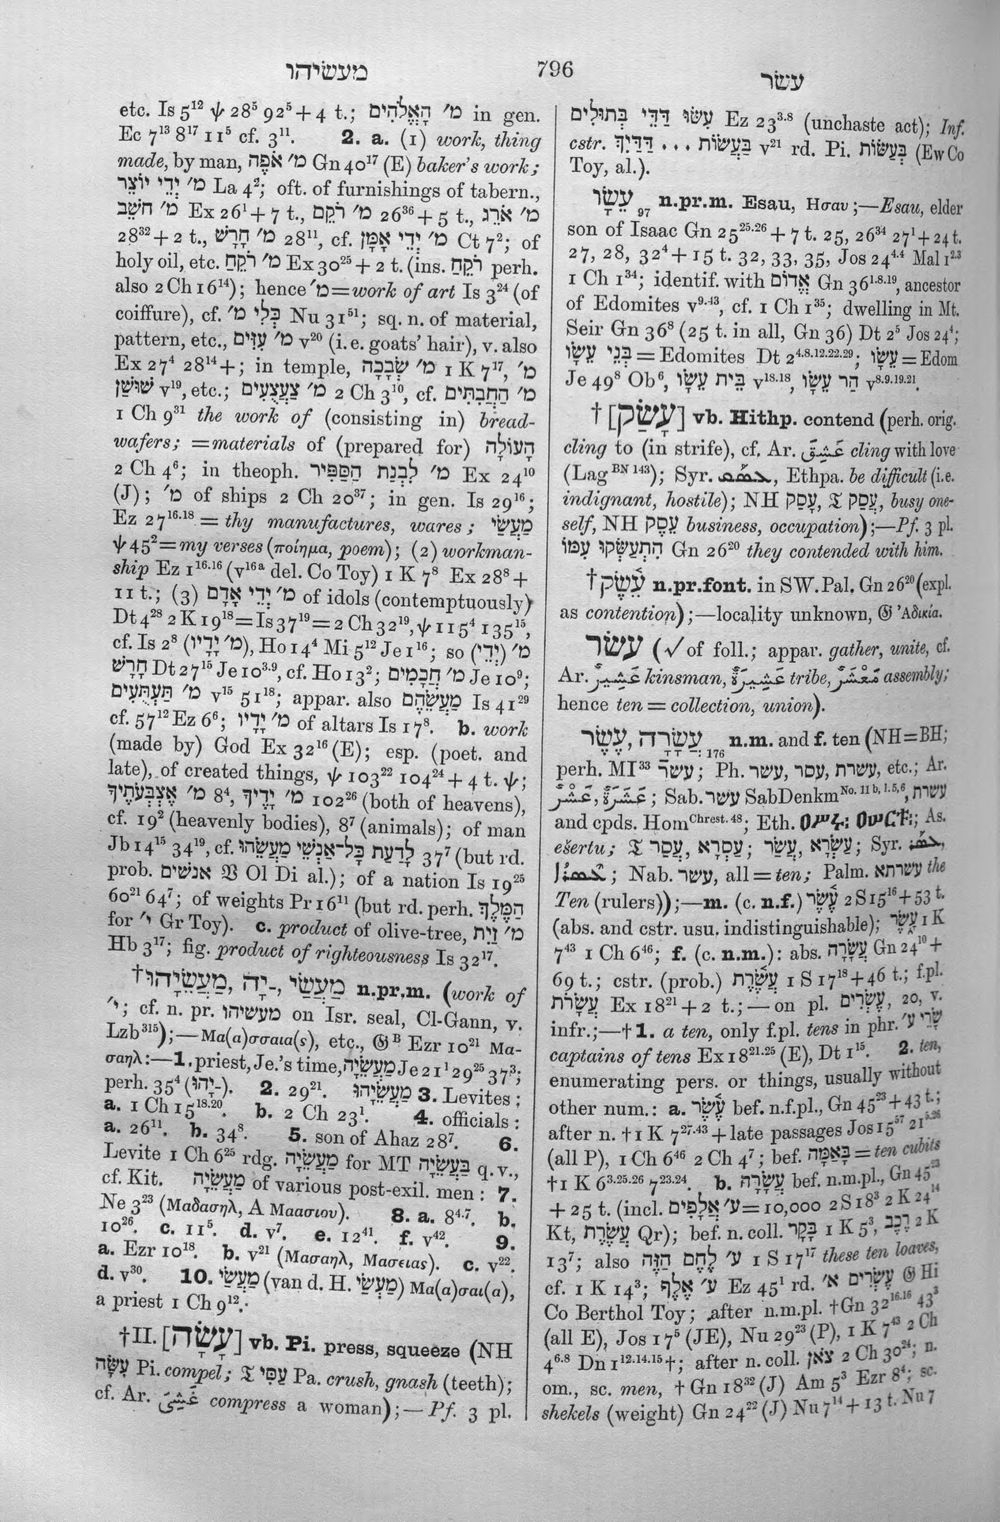 מעשיהו
796
עשר
etc. Is 5¹² ψ 28⁵ 92⁵ + 4 t.; מ׳ הָאֱלֹהִים in gen.
Ec 7¹³ 8¹⁷ 11⁵ cf. 3¹¹. 2. a. (1) work, thing
made, by man, מ׳ אֹפֶה Gn 40¹⁷ (E) baker's work;
מ׳ יְדֵי יוֹצֵר La 4²; oft. of furnishings of tabern.,
מ׳ חשֵׁב Ex 26¹ + 7 t., מ׳ רֹקֵם 26³⁶ + 5 t., מ׳ אֹרֵג
28³² + 2 t., מ׳ חָרָשׁ 28¹¹, cf. מ׳ יְדֵי אָמָּן Ct 7²; of
holy oil, etc. מ׳ רֹקֵחַ Ex 30²⁵ + 2 t. (ins. רֹקֵחַ perh.
also 2 Ch 16¹⁴); hence מ׳ = work of art Is 3²⁴ (of
coiffure), cf. כְּלִי מ׳ Nu 31⁵¹; sq. n. of material,
pattern, etc., מ׳ עִזִּים v²⁰ (i.e. goats' hair), v. also
Ex 27⁴ 28¹⁴ +; in temple, מ׳ שְׂבָכָה 1 K 7¹⁷, מ׳
שׁוּשַׁן v¹⁹, etc.; מ׳ צַעֲצֻעִים 2 Ch 3¹⁰, cf. מ׳ הַחֲבִתִּים
1 Ch 9³¹ the work of (consisting in) bread-
wafers; = materials of (prepared for) הָעוֹלָה
2 Ch 4⁶; in theoph. מ׳ לִבְנַת הַסַּפִּיר Ex 24¹⁰
(J); מ׳ of ships 2 Ch 20³⁷; in gen. Is 29¹⁶;
Ez 27¹⁶·¹⁸ = thy manufactures, wares; מַעֲשַׂי
ψ 45² = my verses (ποίημα, poem); (2) workman-
ship Ez 1¹⁶·¹⁶ (v¹⁶ᵃ del. Co Toy) 1 K 7⁸ Ex 28⁸ +
11 t.; (3) מ׳ יְדֵי אָדָם of idols (contemptuously)
Dt 4²⁸ 2 K 19¹⁸ = Is 37¹⁹ = 2 Ch 32¹⁹, ψ 115⁴ 135¹⁵,
cf. Is 2⁸ (מ׳ יָדָיו), Ho 14⁴ Mi 5¹² Je 1¹⁶; so מ׳ (יְדֵי)
חָרָשׁ Dt 27¹⁵ Je 10³·⁹, cf. Ho 13²; מ׳ חֲכָמִים Je 10⁹;
מ׳ תַּעְתֻּעִים v¹⁵ 51¹⁸; appar. also מַעֲשֵׂהֶם Is 41²⁹
cf. 57¹² Ez 6⁶; מ׳ יָדָיו of altars Is 17⁸. b. work
(made by) God Ex 32¹⁶ (E); esp. (poet. and
late), of created things, ψ 103²² 104²⁴ + 4 t. ψ;
מ׳ אֶצְבְּעֹתֶיךָ 8⁴, מ׳ יָדֶיךָ 102²⁶ (both of heavens),
cf. 19² (heavenly bodies), 8⁷ (animals); of man
Jb 14¹⁵ 34¹⁹, cf. לָדַעַת כָּל־אַנְשֵׁי מַעֲשֵׂהוּ 37⁷ (but rd.
prob. אנשׁים 𝔙 Ol Di al.); of a nation Is 19²⁵
60²¹ 64⁷; of weights Pr 16¹¹ (but rd. perh. הַמֶּלֶךְ
for י׳ Gr Toy). c. product of olive-tree, מ׳ זַיִת
Hb 3¹⁷; fig. product of righteousness Is 32¹⁷.
†מַעֲשַׂי, ־יָה, מַעֲשֵׂיָהוּ n.pr.m. (work of
י׳; cf. n. pr. מעשיהו on Isr. seal, Cl-Gann, v.
Lzb³¹⁵);—Μα(α)σσαια(ς), etc., 𝔊ᴮ Ezr 10²¹ Μα-
σαηλ:—1. priest, Je.'s time, מַעֲשֵׂיָה Je 21¹ 29²⁵ 37³;
perh. 35⁴ (־יָהוּ). 2. 29²¹. מַעֲשֵׂיָהוּ 3. Levites:
a. 1 Ch 15¹⁸·²⁰. b. 2 Ch 23¹. 4. officials:
a. 26¹¹. b. 34⁸. 5. son of Ahaz 28⁷. 6.
Levite 1 Ch 6²⁵ rdg. מַעֲשֵׂיָה for MT בַּעֲשֵׂיָה q.v.,
cf. Kit. מַעֲשֵׂיָה of various post-exil. men: 7.
Ne 3²³ (Μαδασηλ, A Μαασιου). 8. a. 8⁴·⁷. b.
10²⁶. c. 11⁵. d. v⁷. e. 12⁴¹. f. v⁴². 9.
a. Ezr 10¹⁸. b. v²¹ (Μασαηλ, Μασειας). c. v²².
d. v³⁰. 10. מַעֲשַׂי (van d. H. מַעְשַׂי) Μα(α)σαι(α),
a priest 1 Ch 9¹².
†II. [עָשָׂה] vb. Pi. press, squeeze (NH
עִשָּׂה Pi. compel; 𝔗 עַסִּי Pa. crush, gnash (teeth);
cf. Ar. غَشِىَ compress a woman);—Pf. 3 pl.
עִשּׂוּ דַּדֵּי בְתוּלִים Ez 23³·⁸ (unchaste act); Inf.
cstr. בַּעֲשׂוֹת ... דַּדַּיִךְ v²¹ rd. Pi. בְּעַשּׂוֹת (Ew Co
Toy, al.).
עֵשָׂו ₉₇ n.pr.m. Esau, Ησαυ;—Esau, elder
son of Isaac Gn 25²⁵·²⁶ + 7 t. 25, 26³⁴ 27¹ + 24 t.
27, 28, 32⁴ + 15 t. 32, 33, 35, Jos 24⁴·⁴ Mal 1²·³
1 Ch 1³⁴; identif. with אֱדוֹם Gn 36¹·⁸·¹⁹, ancestor
of Edomites v⁹·⁴³, cf. 1 Ch 1³⁵; dwelling in Mt.
Seir Gn 36⁸ (25 t. in all, Gn 36) Dt 2⁵ Jos 24⁴;
בְּנֵי עֵשָׂו = Edomites Dt 2⁴·⁸·¹²·²²·²⁹; עֵשָׂו = Edom
Je 49⁸ Ob⁶, בֵּית עֵשָׂו v¹⁸·¹⁸, הַר עֵשָׂו v⁸·⁹·¹⁹·²¹.
†[עָשַׂק] vb. Hithp. contend (perh. orig.
cling to (in strife), cf. Ar. عَشِقَ cling with love
(Lag ᴮᴺ ¹⁴³); Syr. ܥܣܩ, Ethpa. be difficult (i.e.
indignant, hostile); NH עָסַק, 𝔗 עֲסַק, busy one-
self, NH עֵסֶק business, occupation);—Pf. 3 pl.
הִתְעַשְּׂקוּ עִמּוֹ Gn 26²⁰ they contended with him.
†עֵשֶׂק n.pr.font. in SW. Pal. Gn 26²⁰ (expl.
as contention);—locality unknown, 𝔊 Ἀδικία.
עשׂר (√ of foll.; appar. gather, unite, cf.
Ar. عَشِيرٌ kinsman, عَشِيرَةٌ tribe, مَعْشَرٌ assembly;
hence ten = collection, union).
עֶשֶׂר, עֲשָׂרָה ₁₇₆ n.m. and f. ten (NH = BH;
perh. MI³³ עשר; Ph. עשר, עסר, עשרת, etc.; Ar.
عَشْرٌ, عَشَرَةٌ; Sab. עשר SabDenkm ᴺᵒ· ¹¹ ᵇ, ¹·⁵,⁶, עשרת
and cpds. Hom ᶜʰʳᵉˢᵗ· ⁴⁸; Eth. ዐሥሩ፡ ዐሠርቱ፡; As.
ešertu; 𝔗 עֲסַר, עַסְרָא, עֲשַׂר, עַשְׂרָא; Syr. ܥܣܪ,
ܥܣܪܐ; Nab. עשר, all = ten; Palm. עשרתא the
Ten (rulers));—m. (c. n.f.) עֶשֶׂר 2 S 15¹⁶ + 53 t.
(abs. and cstr. usu. indistinguishable); עָשֶׂר 1 K
7⁴³ 1 Ch 6⁴⁶; f. (c. n.m.): abs. עֲשָׂרָה Gn 24¹⁰ +
69 t.; cstr. (prob.) עֲשֶׂרֶת 1 S 17¹⁸ + 46 t.; f.pl.
עֲשָׂרֹת Ex 18²¹ + 2 t.;—on pl. עֶשְׂרִים, 20, v.
infr.;—†1. a ten, only f.pl. tens in phr. שָׂרֵי ע׳
captains of tens Ex 18²¹·²⁵ (E), Dt 1¹⁵. 2. ten,
enumerating pers. or things, usually without
other num.: a. עֶשֶׂר bef. n.f.pl., Gn 45²³ + 43 t.;
after n. †1 K 7²⁷·⁴³ + late passages Jos 15⁵⁷ 21⁵·²⁶
(all P), 1 Ch 6⁴⁶ 2 Ch 4⁷; bef. בָּאַמָּה = ten cubits
†1 K 6³·²⁵·²⁶ 7²³·²⁴. b. עֲשָׂרָה bef. n.m.pl., Gn 45²³
+ 25 t. (incl. ע׳ אֲלָפִים = 10,000 2 S 18³ 2 K 24¹⁴
Kt, עֲשֶׂרֶת Qr); bef. n. coll. בָּקָר 1 K 5³, רֶכֶב 2 K
13⁷; also ע׳ לֶחֶם הַזֶּה 1 S 17¹⁷ these ten loaves,
cf. 1 K 14³; ע׳ אֶלֶף Ez 45¹ rd. עֶשְׂרִים א׳ 𝔊 Hi
Co Berthol Toy; after n.m.pl. †Gn 32¹⁶·¹⁶ 43³
(all E), Jos 17⁵ (JE), Nu 29²³ (P), 1 K 7⁴³ 2 Ch
4⁶·⁸ Dn 1¹²·¹⁴·¹⁵†; after n. coll. צֹאן 2 Ch 30²⁴; n.
om., sc. men, †Gn 18³² (J) Am 5³ Ezr 8⁴; sc.
shekels (weight) Gn 24²² (J) Nu 7¹⁴ + 13 t. Nu 7